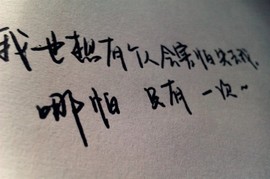 我也想有个人会害怕失去我.
哪怕 只有 一次~